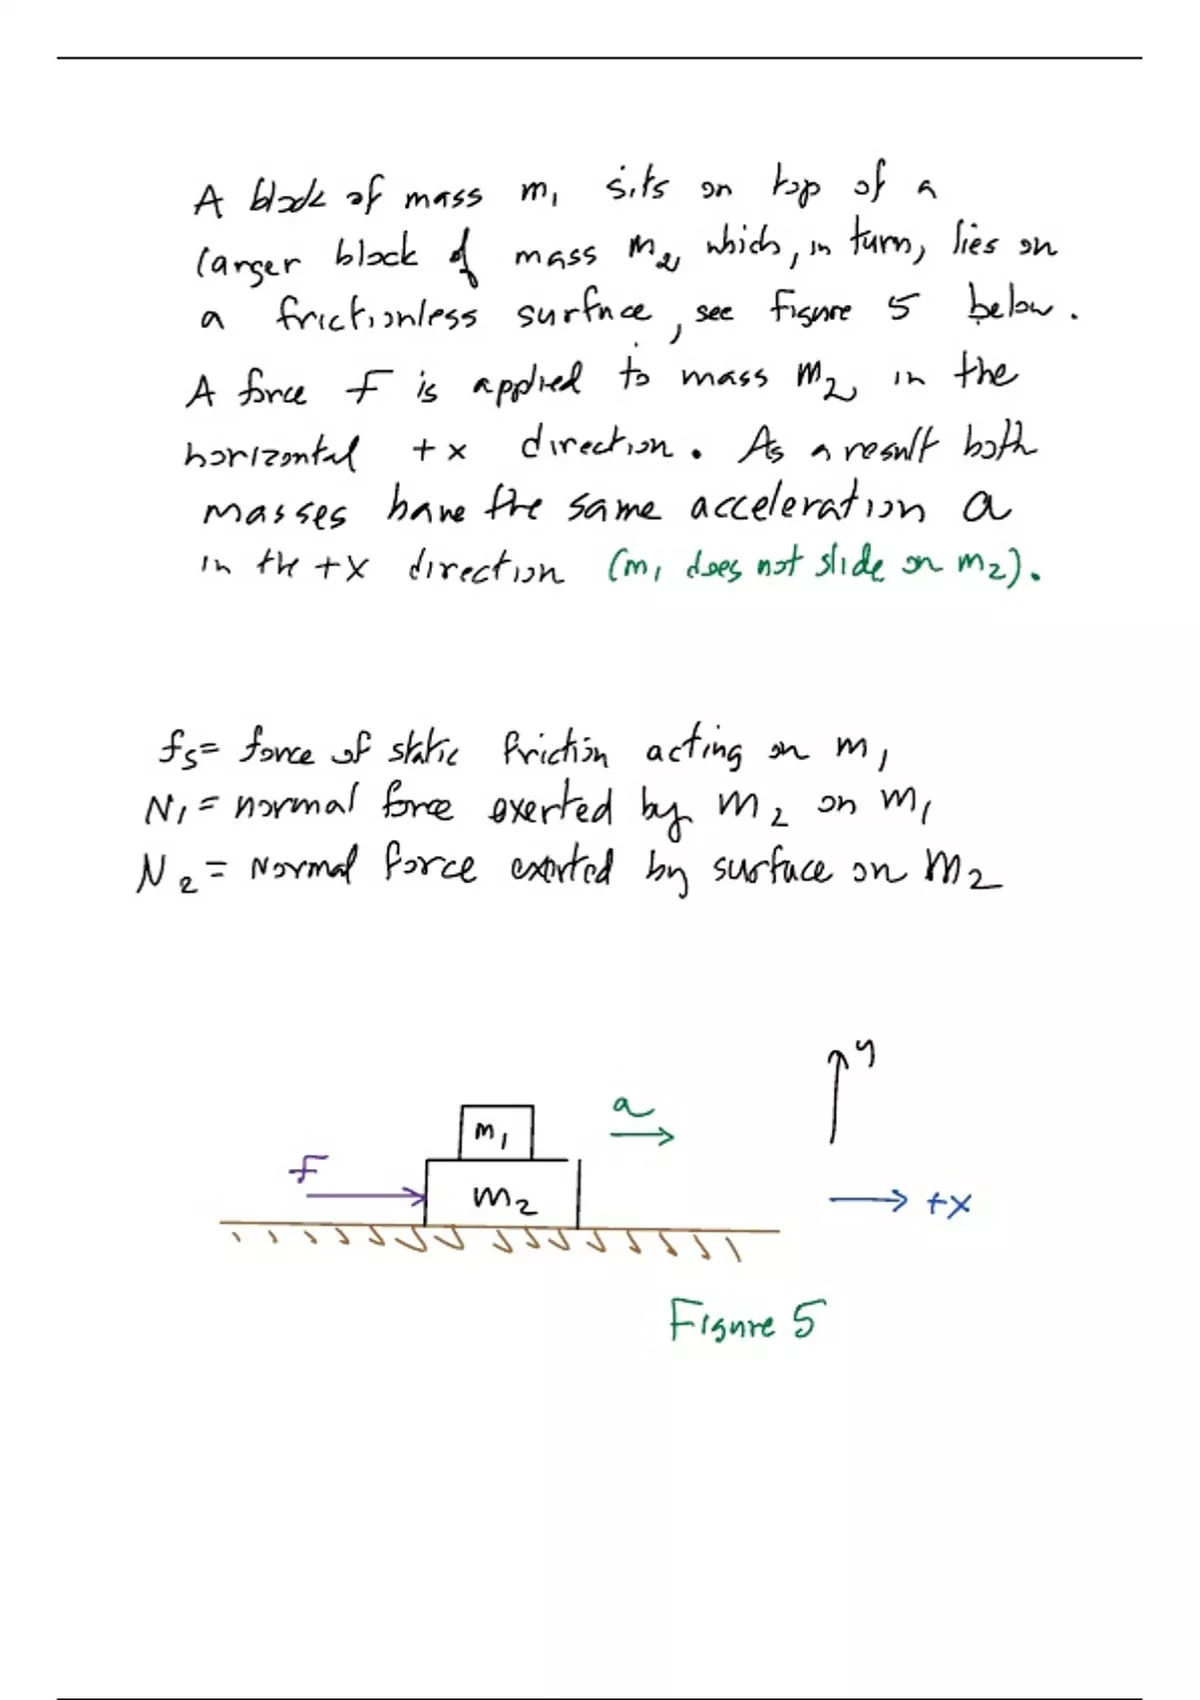 A block of mass m₁ sits on top of a
larger block of mass m₂ which, in turn, lies on
a frictionless surface, see Figure 5 below.
A force F is applied to mass m₂ in the
horizontal +x direction. As a result both
masses have the same acceleration a
in the +x direction (m₁ does not slide on m₂).
fs= force of static friction acting on m₁
N₁ = normal force exerted by m₂ on m₁
N₂ = Normal force exerted by surface on m₂
y
a
m₁
F
m₂
+x
Figure 5